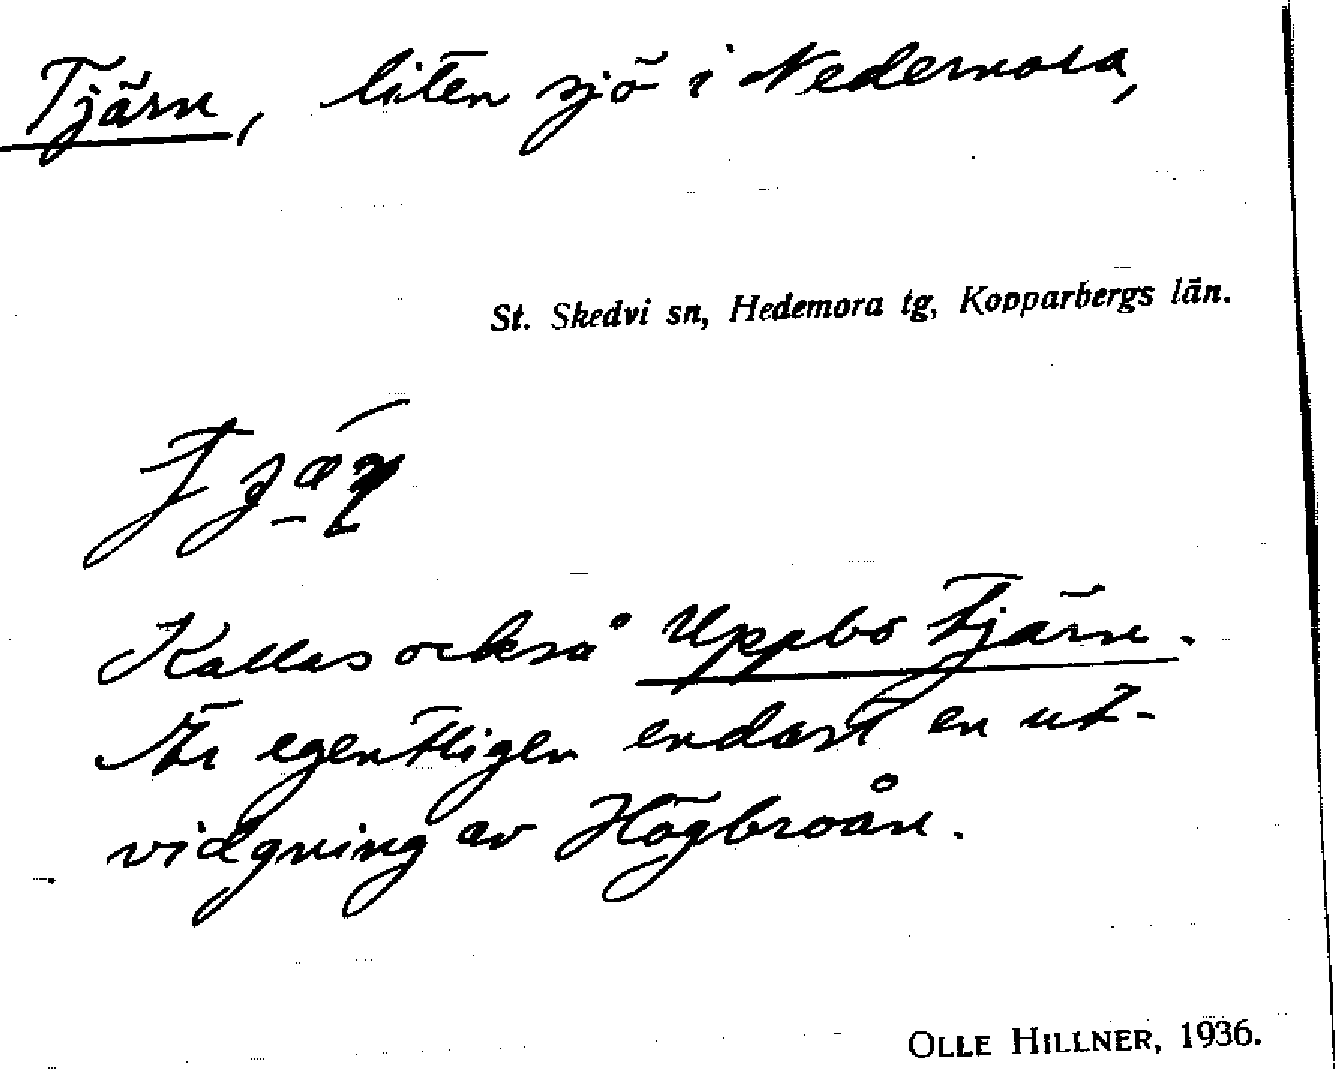 Tjärn, liten sjö i Nedernora,
St. Skedvi sn, Hedemora tg, Kopparbergs län.
Kallas också Uppbo tjärn.
Är egentligen endast en ut-
vidgning av Högbroån.
OLLE HILLNER, 1936.